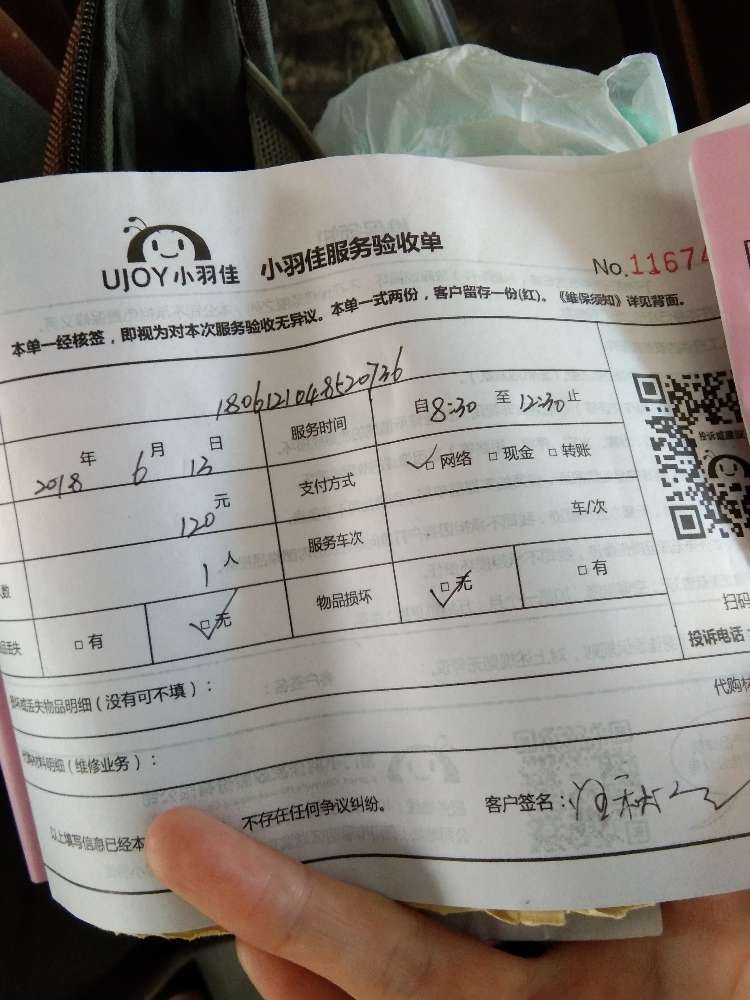 UJOY小羽佳 小羽佳服务验收单 No.11674
本单一经核签，即视为对本次服务验收无异议。本单一式两份，客户留存一份(红)。《维保须知》详见背面。
1806121048520736
2018年6月13日 服务时间 自8:30至12:30止
120元 支付方式 □网络 □现金 □转账
人数 1人 服务车次 车/次
品丢失 □有 □无 物品损坏 □无 □有
扫码
投诉电话
丢失物品明细（没有可不填）：
代购材
材料明细（维修业务）：
以上填写信息已经本 不存在任何争议纠纷。 客户签名：